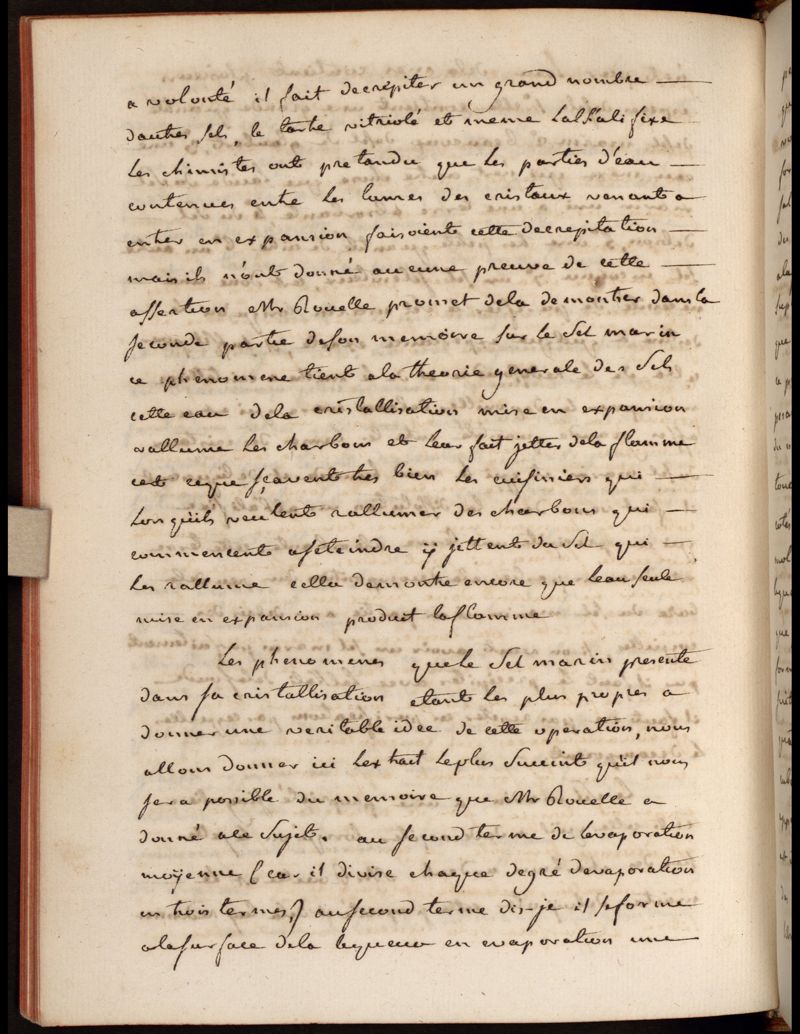 a volonté il fait decrepiter un grand nombre
dautres sels, le tartre vitriolé et meme Lalkali fixe
Les chimistes ont pretandu que Les parties d'eau
contenues entre Les lames des cristaux venants a
entrer en expansion faisoient cette decrepitation
mais ils n'ont donné aucune preuve de cette
assertion Mr Rouelle promet de la demontrer dans la
seconde partie de son memoire sur le Sel marin
ce phenomene tient a la theorie generale des Sels
cette eau de la cristallisation mise en expansion
rallume Les charbons et leur fait jetter de la flamme
cest ce que sçavent tres bien Les cuisiniers qui
Lorsquils veulent rallumer des charbons qui
commencent a seteindre ÿ jettent du Sel qui
Les rallume cella demontre encore que Leau seule
mise en expansion produit la flamme
Les phenomenes que le Sel marin presente
dans sa cristallisation etant Les plus propres a
donner une veritable idée de cette operation, nous
allons donner ici Lextrait Le plus Succint quil nous
sera possible du memoire que Mr Rouelle a
donné a ce Sujet. au second terme de levaporation
moÿenne (car il divise chaque degré devaporation
en trois termes,) au second terme dis-je il se forme
a la surface de la liqueur en evaporation une